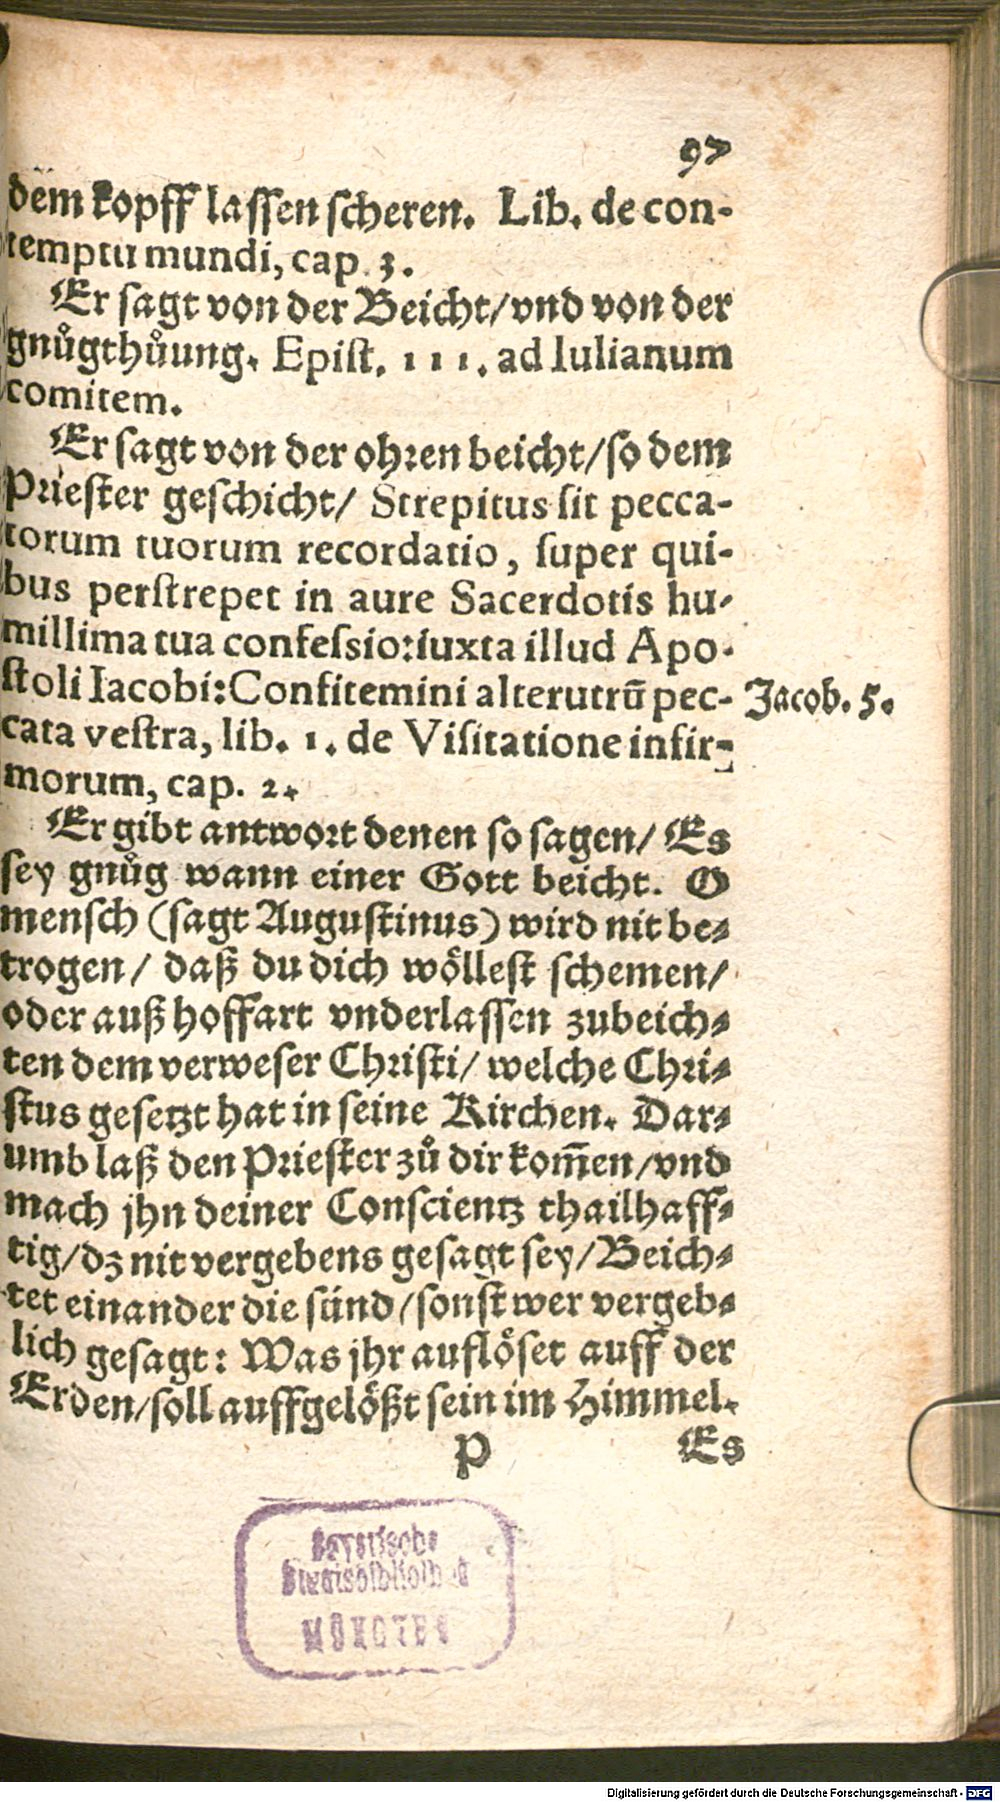 97
dem kopff lassen scheren. Lib. de con-
temptu mundi, cap. 3.
Er sagt von der Beicht/ vnd von der
gnůgthůung. Epist. 111. ad Iulianum
comitem.
Er sagt von der ohren beicht/ so dem
Priester geschicht/ Strepitus sit pecca-
torum tuorum recordatio, super qui-
bus perstrepet in aure Sacerdotis hu-
millima tua confessio: iuxta illud Apo-
stoli Iacobi: Confitemini alterutrũ pec-
Jacob. 5.
cata vestra, lib. 1. de Visitatione infir-
morum, cap. 2.
Er gibt antwort denen so sagen/ Es
sey gnůg wann einer Gott beicht. O
mensch (sagt Augustinus) wird nit be-
trogen/ daß du dich wöllest schemen/
oder auß hoffart vnderlassen zubeich-
ten dem verweser Christi/ welche Chri-
stus gesetzt hat in seine Kirchen. Dar-
umb laß den Priester zů dir kom̃en/ vnd
mach jhn deiner Conscientz thailhaff-
tig/ dz nit vergebens gesagt sey/ Beich-
tet einander die sünd/ sonst wer vergeb-
lich gesagt: Was jhr auflöset auff der
Erden/ soll auffgelößt sein im Himmel.
P Es
Bayerische
Staatsbibliothek
MÜNCHEN
Digitalisierung gefördert durch die Deutsche Forschungsgemeinschaft - DFG